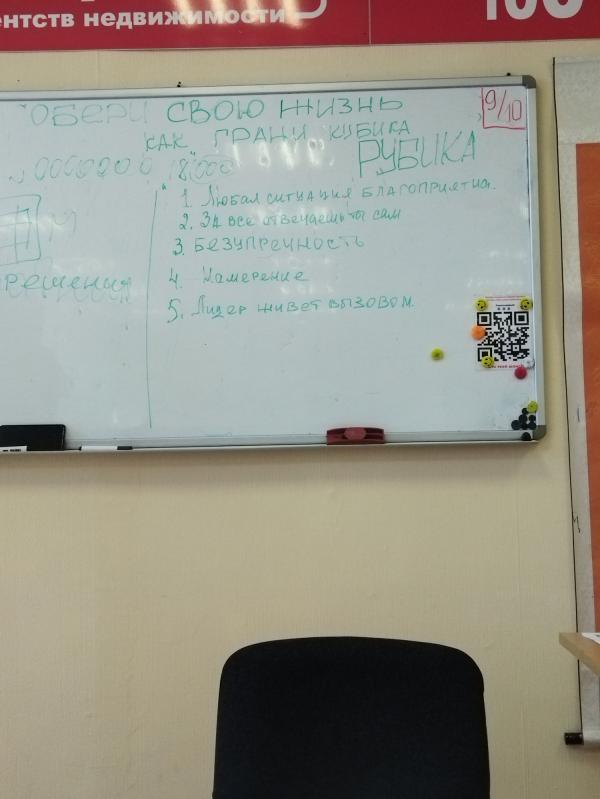 ентств недвижимости
100
ОБЕРИ СВОЮ ЖИЗНЬ
9/10
КАК ГРАНИ КУБИКА
РУБИКА
1. Любая ситуация благоприятна.
2. За все отвечаешь ты сам
3. Безупречность
решения
4. Намерение
5. Лидер живет вызовом.